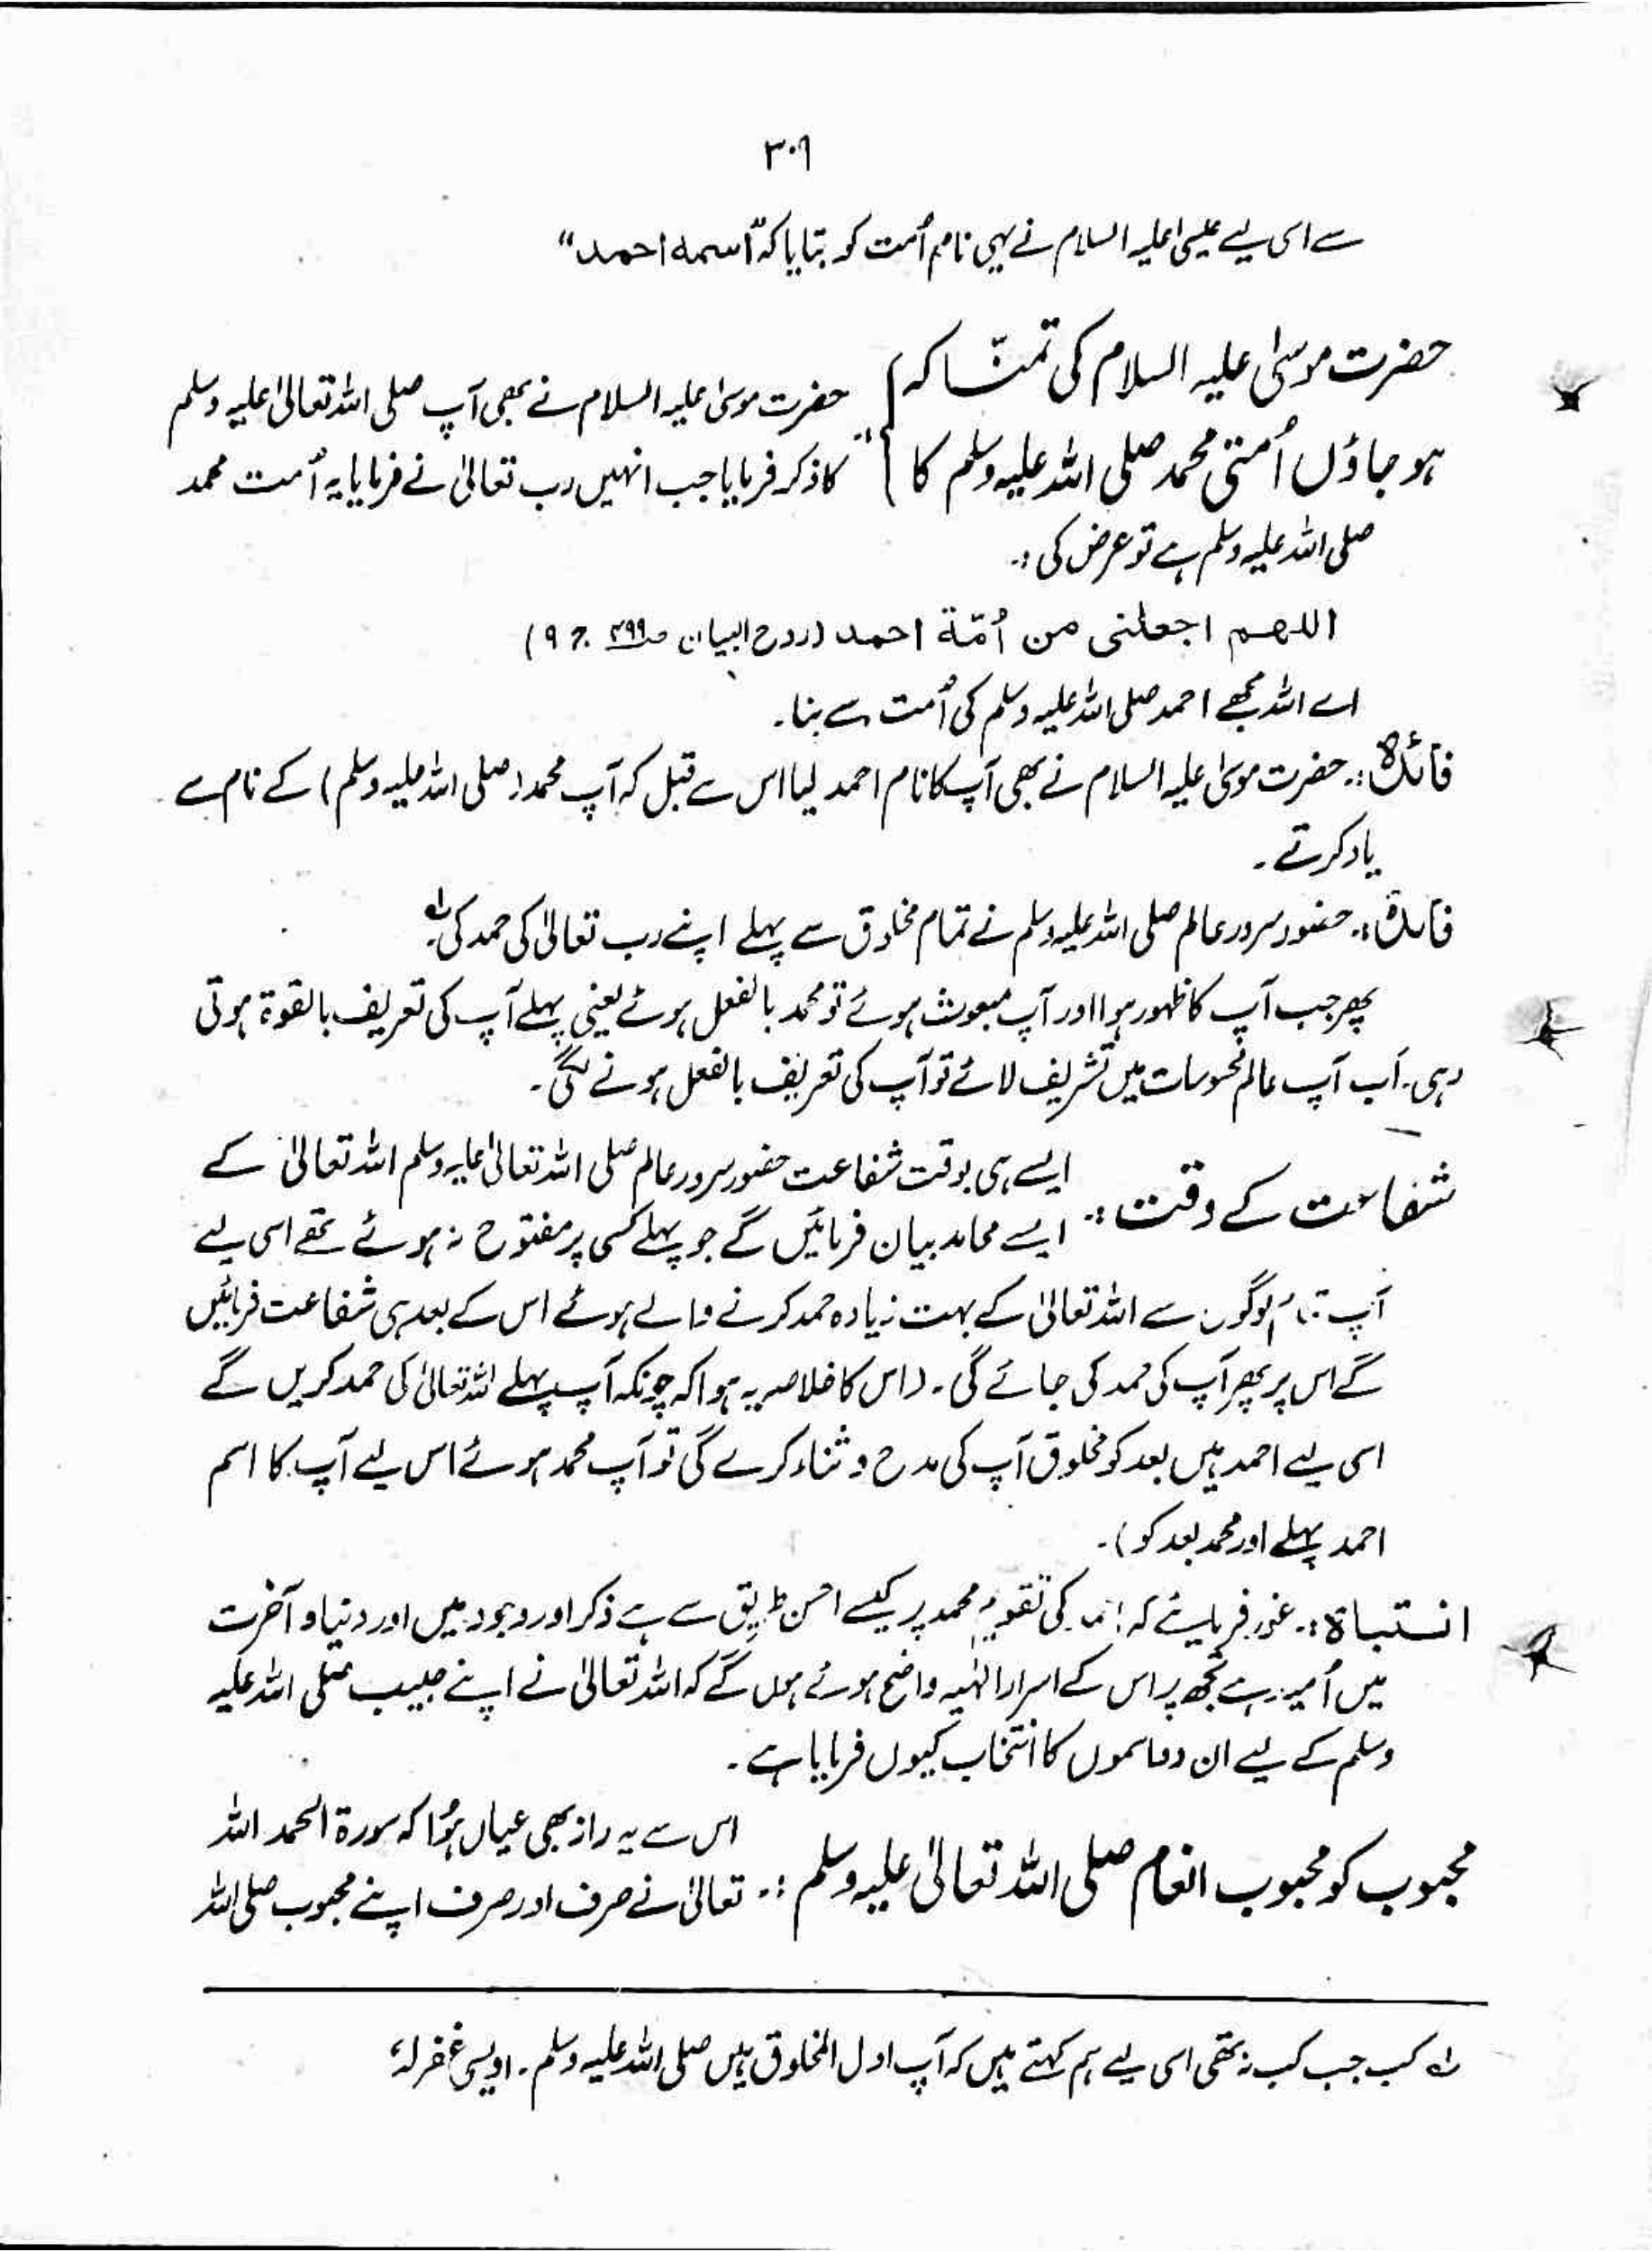 ۳۰۹
سے اسی لیے عیسیٰ علیہ السلام نے یہی نام اُمت کو بتایا کہ "اسمه احمد"
حضرت موسیٰ علیہ السلام کی تمنّا کہ
ہو جاؤں اُمتی محمد صلی اللہ علیہ وسلم کا
حضرت موسیٰ علیہ السلام نے بھی آپ صلی اللہ تعالیٰ علیہ وسلم
کا ذکر فرمایا جب انہیں رب تعالیٰ نے فرمایا یہ اُمت محمد
صلی اللہ علیہ وسلم ہے تو عرض کی :۔
اللهم اجعلنى من أمّة احمد (روح البیان صـ ۴۹۹ ج ۹)
اے اللہ مجھے احمد صلی اللہ علیہ وسلم کی اُمت سے بنا۔
فائدہ :۔ حضرت موسیٰ علیہ السلام نے بھی آپ کا نام احمد لیا اس سے قبل کہ آپ محمد (صلی اللہ علیہ وسلم) کے نام سے
یاد کرتے ۔
فائدہ :۔ حضور سرور عالم صلی اللہ علیہ وسلم نے تمام مخلوق سے پہلے اپنے رب تعالیٰ کی حمد کی لہ
پھر جب آپ کا ظہور ہوا اور آپ مبعوث ہوئے تو محمد بالفعل ہوئے یعنی پہلے آپ کی تعریف بالقوة ہوتی
رہی۔ اَب آپ عالم محسوسات میں تشریف لائے تو آپ کی تعریف بالفعل ہونے لگی ۔
شفاعت کے وقت :۔ ایسے ہی بوقت شفاعت حضور سرور عالم صلی اللہ تعالیٰ علیہ وسلم اللہ تعالیٰ کے
ایسے محامد بیان فرمائیں گے جو پہلے کسی پر مفتوح نہ ہوئے تھے اسی لیے
آپ تمام لوگوں سے اللہ تعالیٰ کے بہت زیادہ حمد کرنے والے ہوئے اس کے بعد ہی شفاعت فرمائیں
گے اس پر پھر آپ کی حمد کی جائے گی ۔ (اس کا خلاصہ یہ ہوا کہ چونکہ آپ پہلے اللہ تعالیٰ کی حمد کریں گے
اسی لیے احمد ہیں بعد کو مخلوق آپ کی مدح و ثناء کرے گی تو آپ محمد ہوئے اس لیے آپ کا اسم
احمد پہلے اور محمد بعد کو)۔
انتباہ :۔ غور فرمایئے کہ احمد کی تقدیم محمد پر کیسے احسن طریق سے ہے ذکر اور وجود میں اور دنیا و آخرت
میں اُمید ہے تجھ پر اس کے اسرار الٰہیہ واضح ہوئے ہوں گے کہ اللہ تعالیٰ نے اپنے حبیب صلی اللہ علیہ
وسلم کے لیے ان دو اسموں کا انتخاب کیوں فرمایا ہے ۔
محبوب کو محبوب انعام صلی اللہ تعالیٰ علیہ وسلم :۔ اس سے یہ راز بھی عیاں ہُوا کہ سورة الحمد اللہ
تعالیٰ نے صرف اور صرف اپنے محبوب صلی اللہ
لہ کب جب کب نہ تھی اسی لیے ہم کہتے ہیں کہ آپ اول المخلوق ہیں صلی اللہ علیہ وسلم ۔ اویسی غفرلہٗ